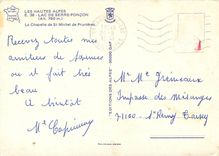 LES HAUTES ALPES
E. 38 - LAC DE SERRE-PONÇON
(Alt. 780 m.)
La Chapelle de St Michel de Prunières
Recevez toutes mes
amitiés de
où il fait très
beau
A bientôt
Mme
EDITIONS DES ALPES
05000 GAP
Mr Mme
Impasse des Mésanges
71100 - St Remy